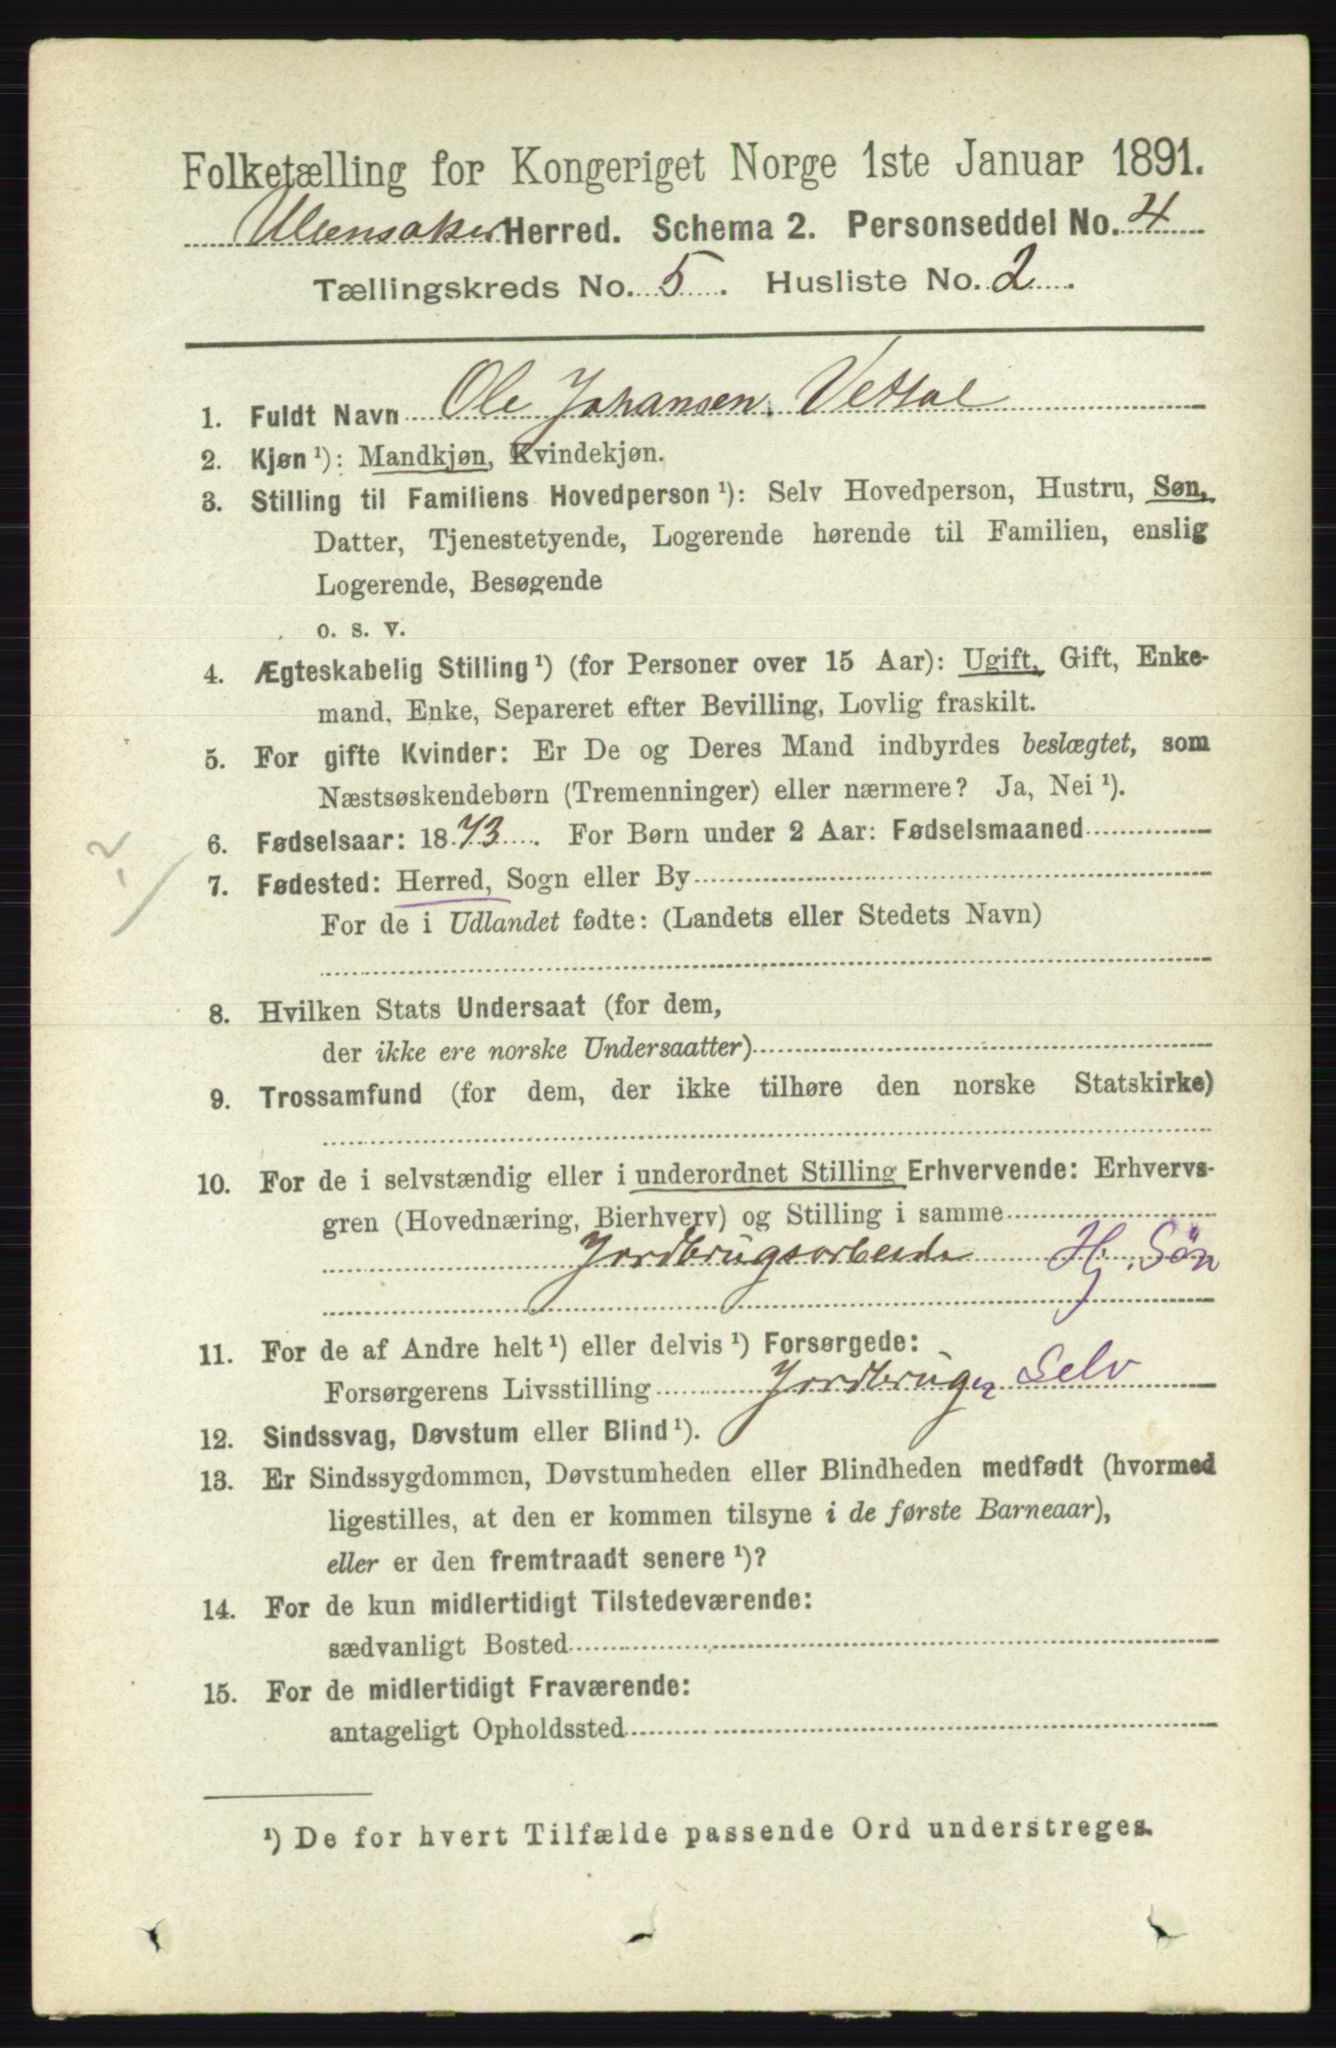 Folketælling for Kongeriget Norge 1ste Januar 1891.
Ullensaker Herred. Schema 2. Personseddel No. 4
Tællingskreds No. 5. Husliste No. 2.
1. Fuldt Navn Ole Johansen Vethal
2. Kjøn¹): Mandkjøn, Kvindekjøn.
3. Stilling til Familiens Hovedperson¹): Selv Hovedperson, Hustru, Søn,
Datter, Tjenestetyende, Logerende hørende til Familien, enslig
Logerende, Besøgende
o. s. v.
4. Ægteskabelig Stilling¹) (for Personer over 15 Aar): Ugift, Gift, Enke-
mand, Enke, Separeret efter Bevilling, Lovlig fraskilt.
5. For gifte Kvinder: Er De og Deres Mand indbyrdes beslægtet, som
Næstsøskendebørn (Tremenninger) eller nærmere? Ja, Nei¹).
6. Fødselsaar: 1873. For Børn under 2 Aar: Fødselsmaaned
7. Fødested: Herred, Sogn eller By
For de i Udlandet fødte: (Landets eller Stedets Navn)
8. Hvilken Stats Undersaat (for dem,
der ikke ere norske Undersaatter)
9. Trossamfund (for dem, der ikke tilhøre den norske Statskirke)
10. For de i selvstændig eller i underordnet Stilling Erhvervende: Erhvervs-
gren (Hovednæring, Bierhverv) og Stilling i samme
Jordbrugsarbeide Hj. Søn
11. For de af Andre helt¹) eller delvis¹) Forsørgede:
Forsørgerens Livsstilling Jordbruger Selv
12. Sindssvag, Døvstum eller Blind¹).
13. Er Sindssygdommen, Døvstumheden eller Blindheden medfødt (hvormed
ligestilles, at den er kommen tilsyne i de første Barneaar),
eller er den fremtraadt senere¹)?
14. For de kun midlertidigt Tilstedeværende:
sædvanligt Bosted
15. For de midlertidigt Fraværende:
antageligt Opholdssted
¹) De for hvert Tilfælde passende Ord understreges.